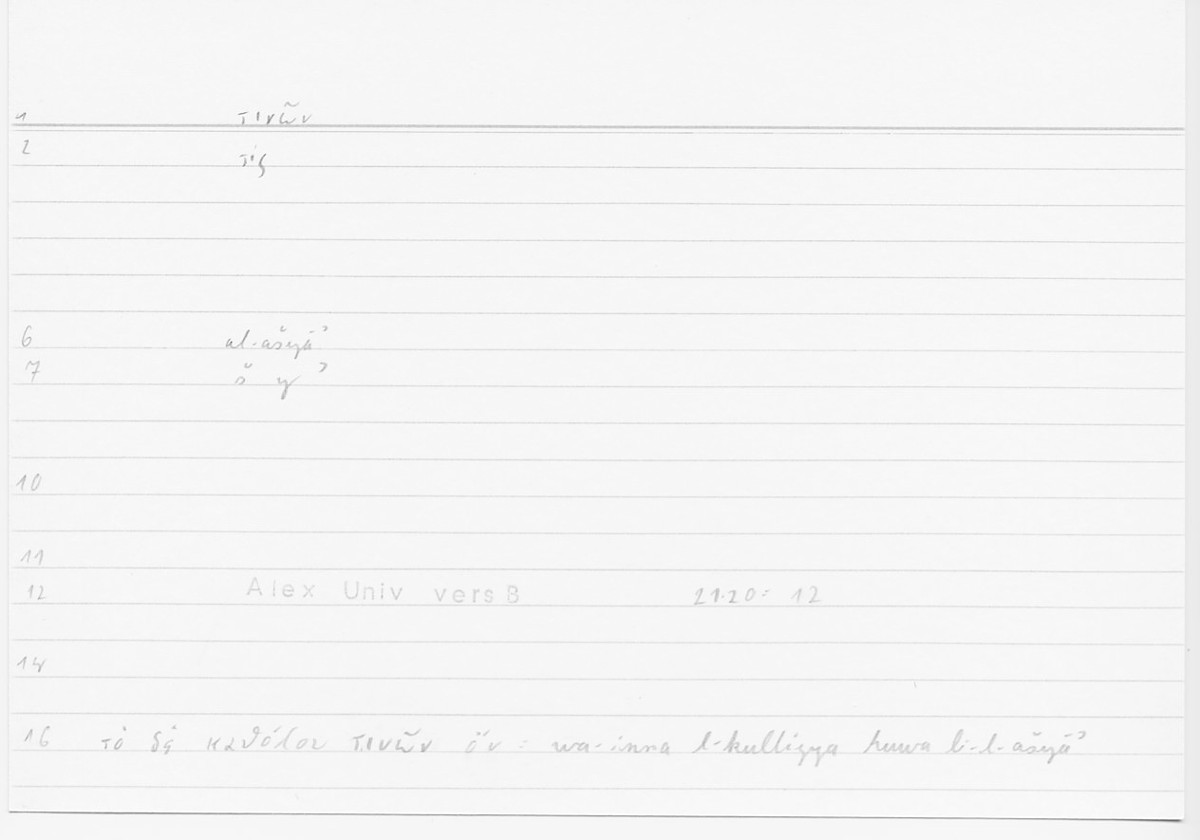 1 τινῶν
2 τίς
6 al-ašyāʾ
7 š y ʾ
10
11
12 Alex Univ vers B 21.20 : 12
14
16 τὸ δὲ καθόλου τινῶν ὄν : wa-inna l-kulliyya huwa li-l-ašyāʾ